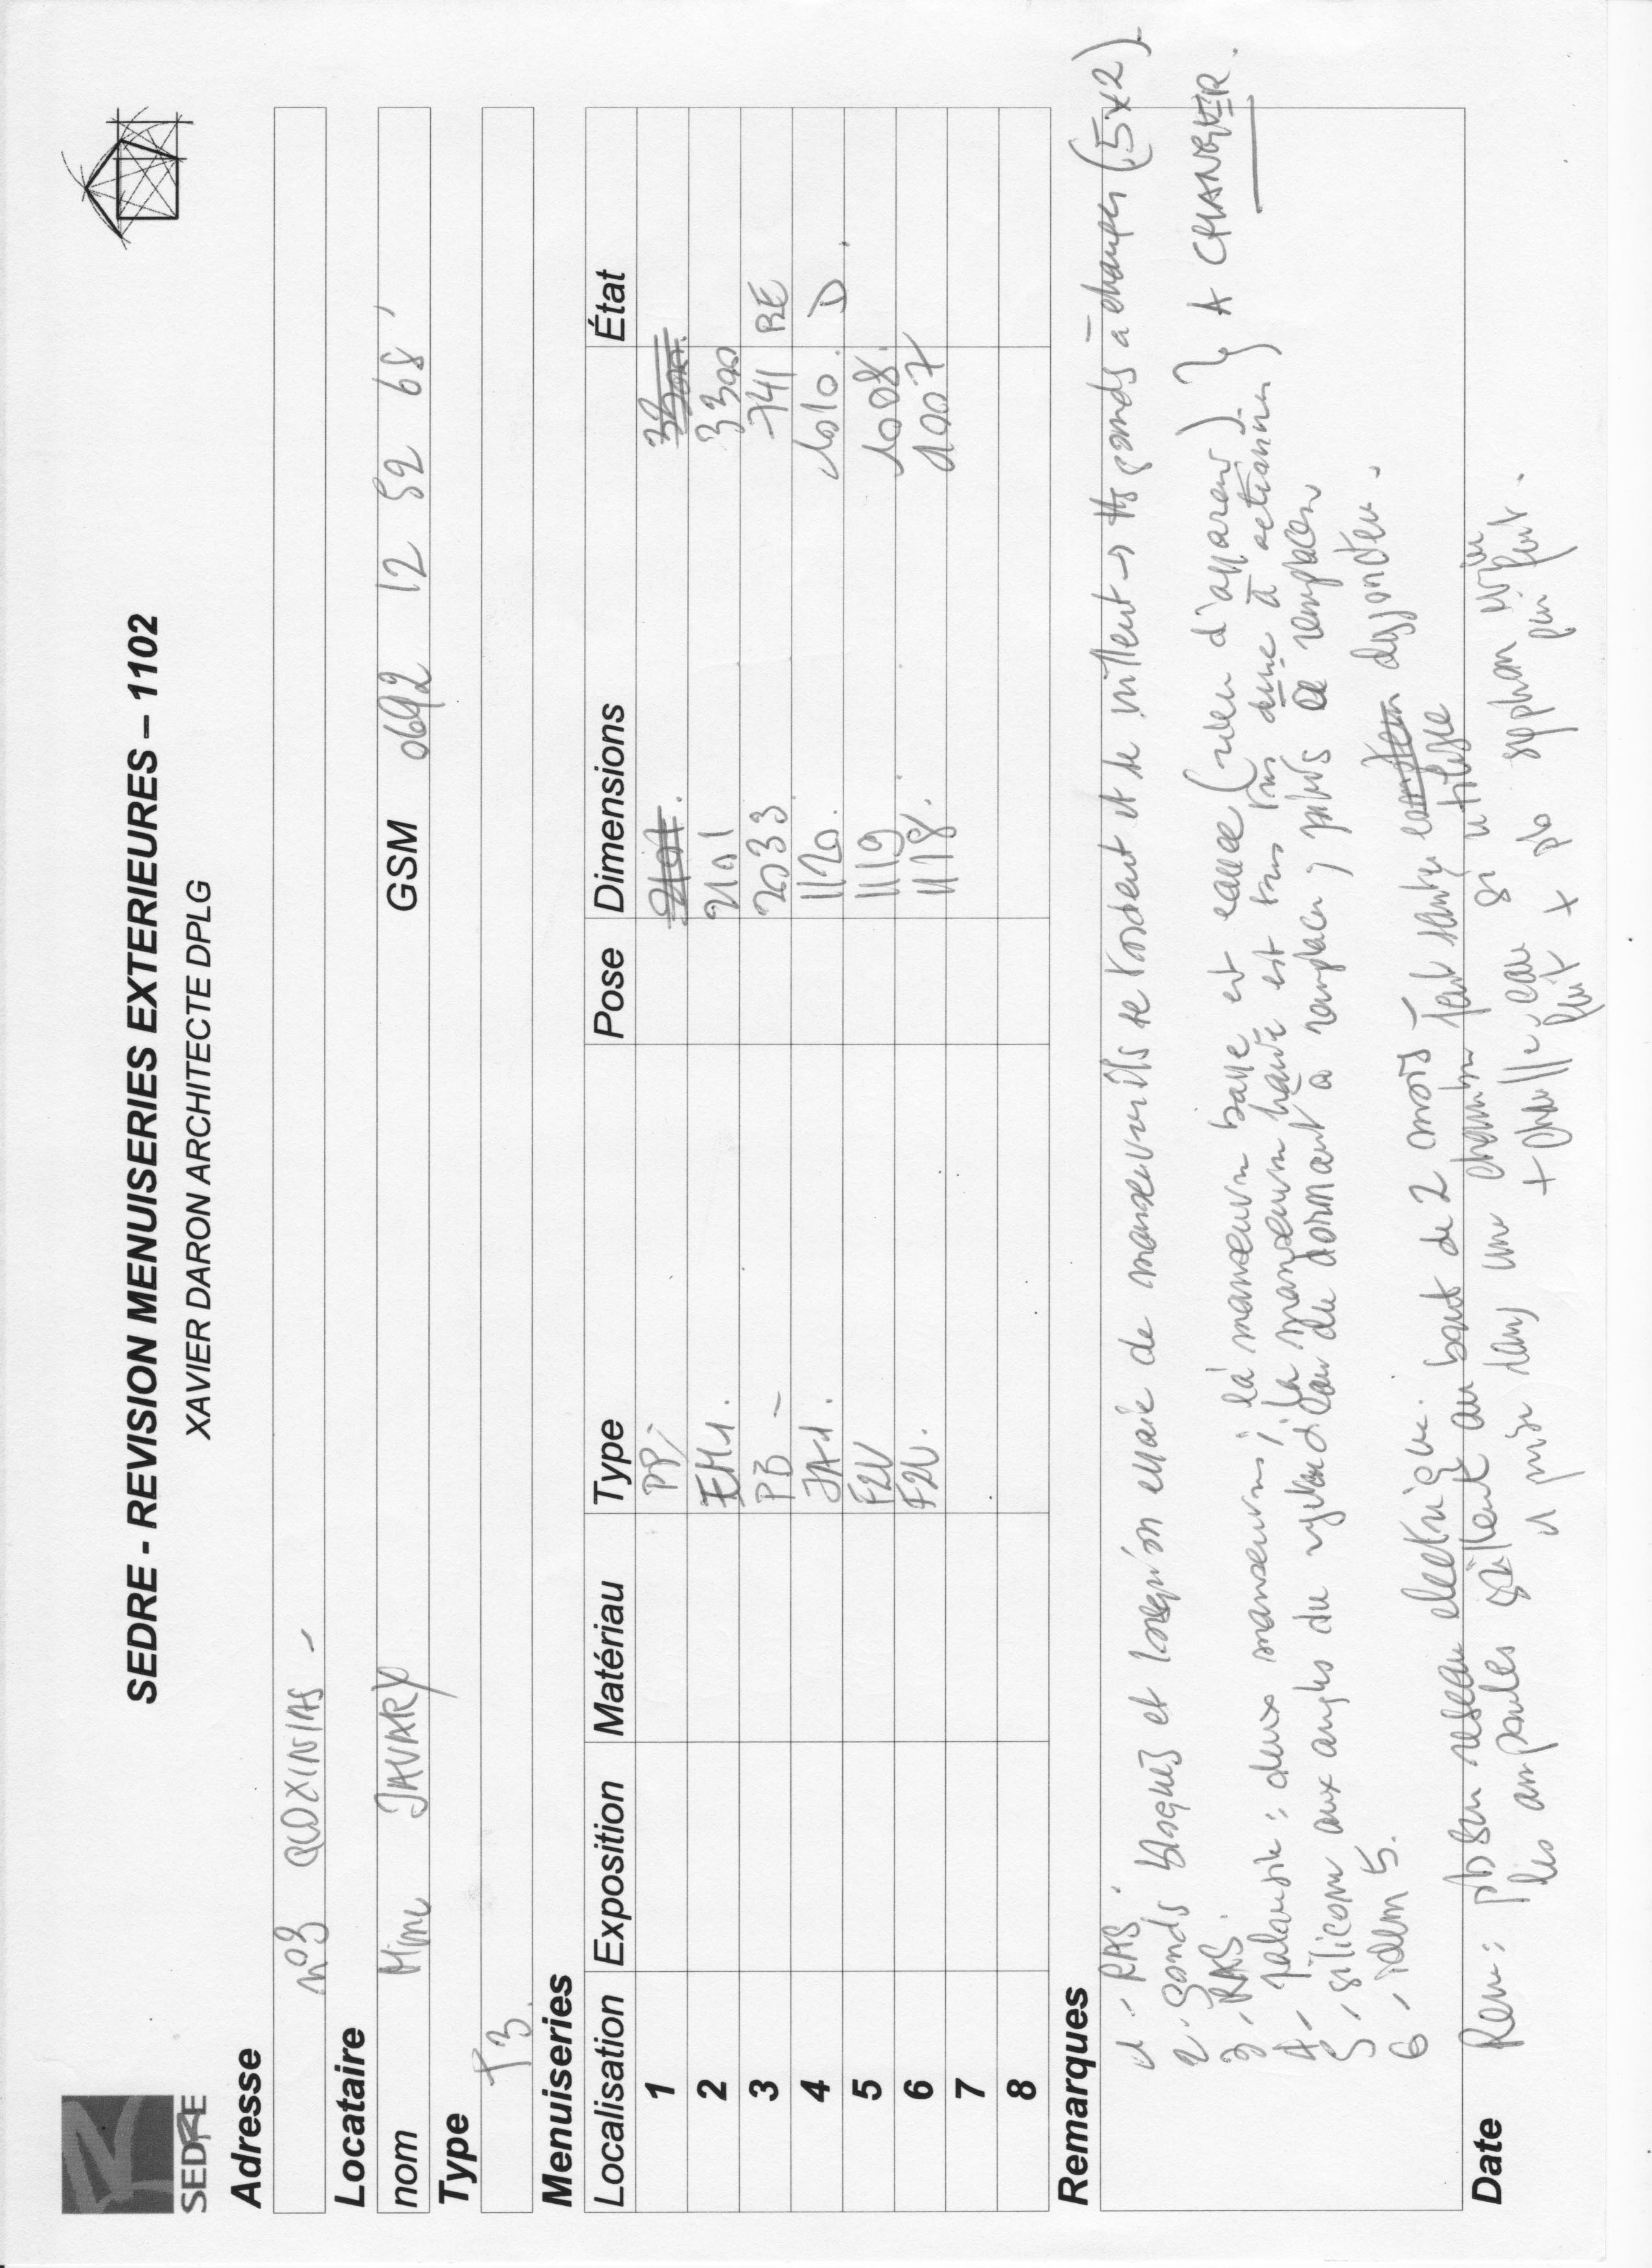 SEDRE
SEDRE - REVISION MENUISERIES EXTERIEURES – 1102
XAVIER DARON ARCHITECTE DPLG
Adresse
n°3 GLOXINIAS -
Locataire
nom Mme JAVARY GSM 0692 12 52 68
Type
T3.
Menuiseries
Localisation Exposition Matériau Type Pose Dimensions État
1 PP
2 EM1. 2101 3300
3 PB - 2033 741 BE
4 JA1. 1120. 1010. D.
5 F2V 1119 1008.
6 F2V. 1118. 1007
7
8
Remarques
1 - RAS.
2 - gonds bloqués et lorsqu'on essaie de manoeuvrer ils se tordent et se vrillent → gonds à changer (5x2).
3 - RAS.
4 - jalousie : deux manoeuvres ; la manoeuvre basse est cassée (rien d'apparent).
la manoeuvre haute est très très dure à actionner } A CHANGER.
5 - silicone aux angles du dormant à remplacer, joints à remplacer
6 - idem 5.
Rem : pb sur réseau électrique.
les ampoules grillent au bout de 2 mois - disjoncteur.
1 prise dans une chambre fait sauter si utilisée
+ chauffe-eau fuit + pb syphon évier qui fuit.
Date